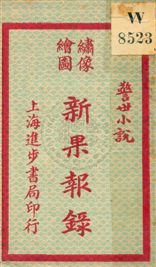 W
8523
警世小說
繡像
繪圖
新果報錄
上海進步書局印行